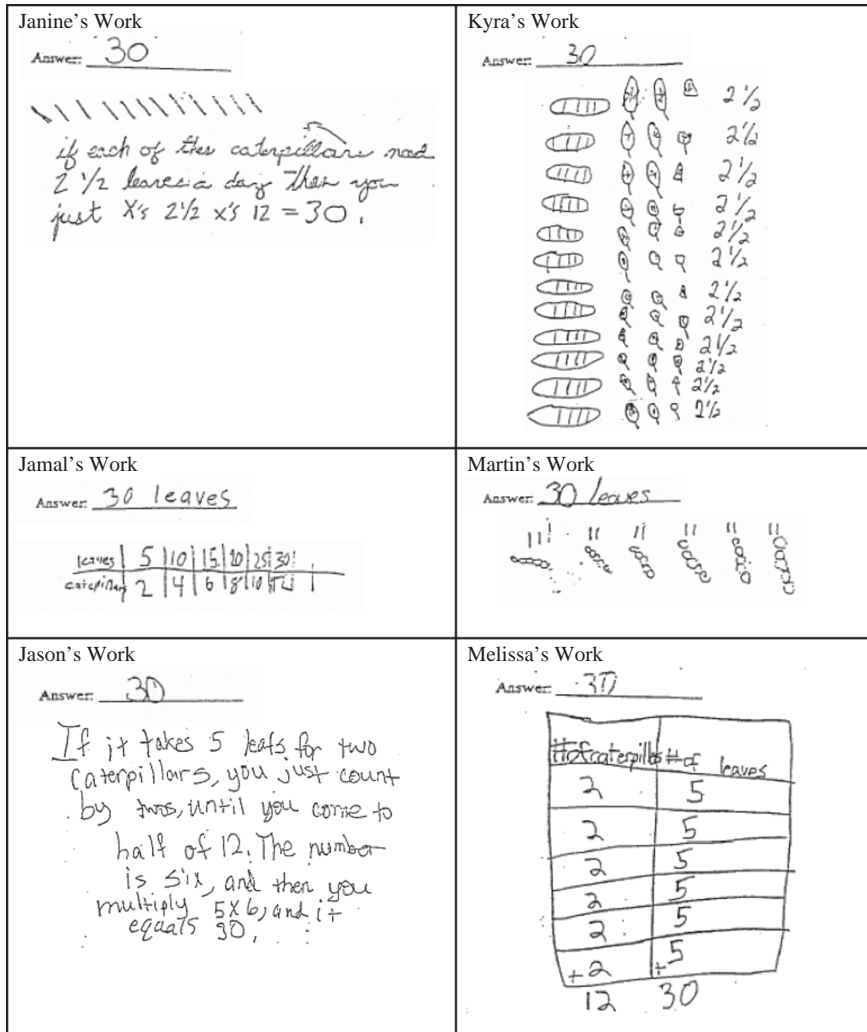 Janine's Work
Answer: 30
if each of the caterpillars had
2 1/2 leaves a day then you
just X's 2 1/2 x's 12 = 30.
Kyra's Work
Answer: 30
2 1/2
2 1/2
2 1/2
2 1/2
2 1/2
2 1/2
2 1/2
2 1/2
2 1/2
2 1/2
2 1/2
2 1/2
Jamal's Work
Answer: 30 leaves
leaves 5 10 15 20 25 30
2 4 6 8 10 12
Martin's Work
Answer: 30 leaves
Jason's Work
Answer: 30
If it takes 5 leafs for two
caterpillars, you just count
by twos, until you come to
half of 12. The number
is six, and then you
multiply 5x6, and it
equals 30.
Melissa's Work
Answer: 30
# of #of leaves
2 5
2 5
2 5
2 5
2 5
+2 +5
12 30